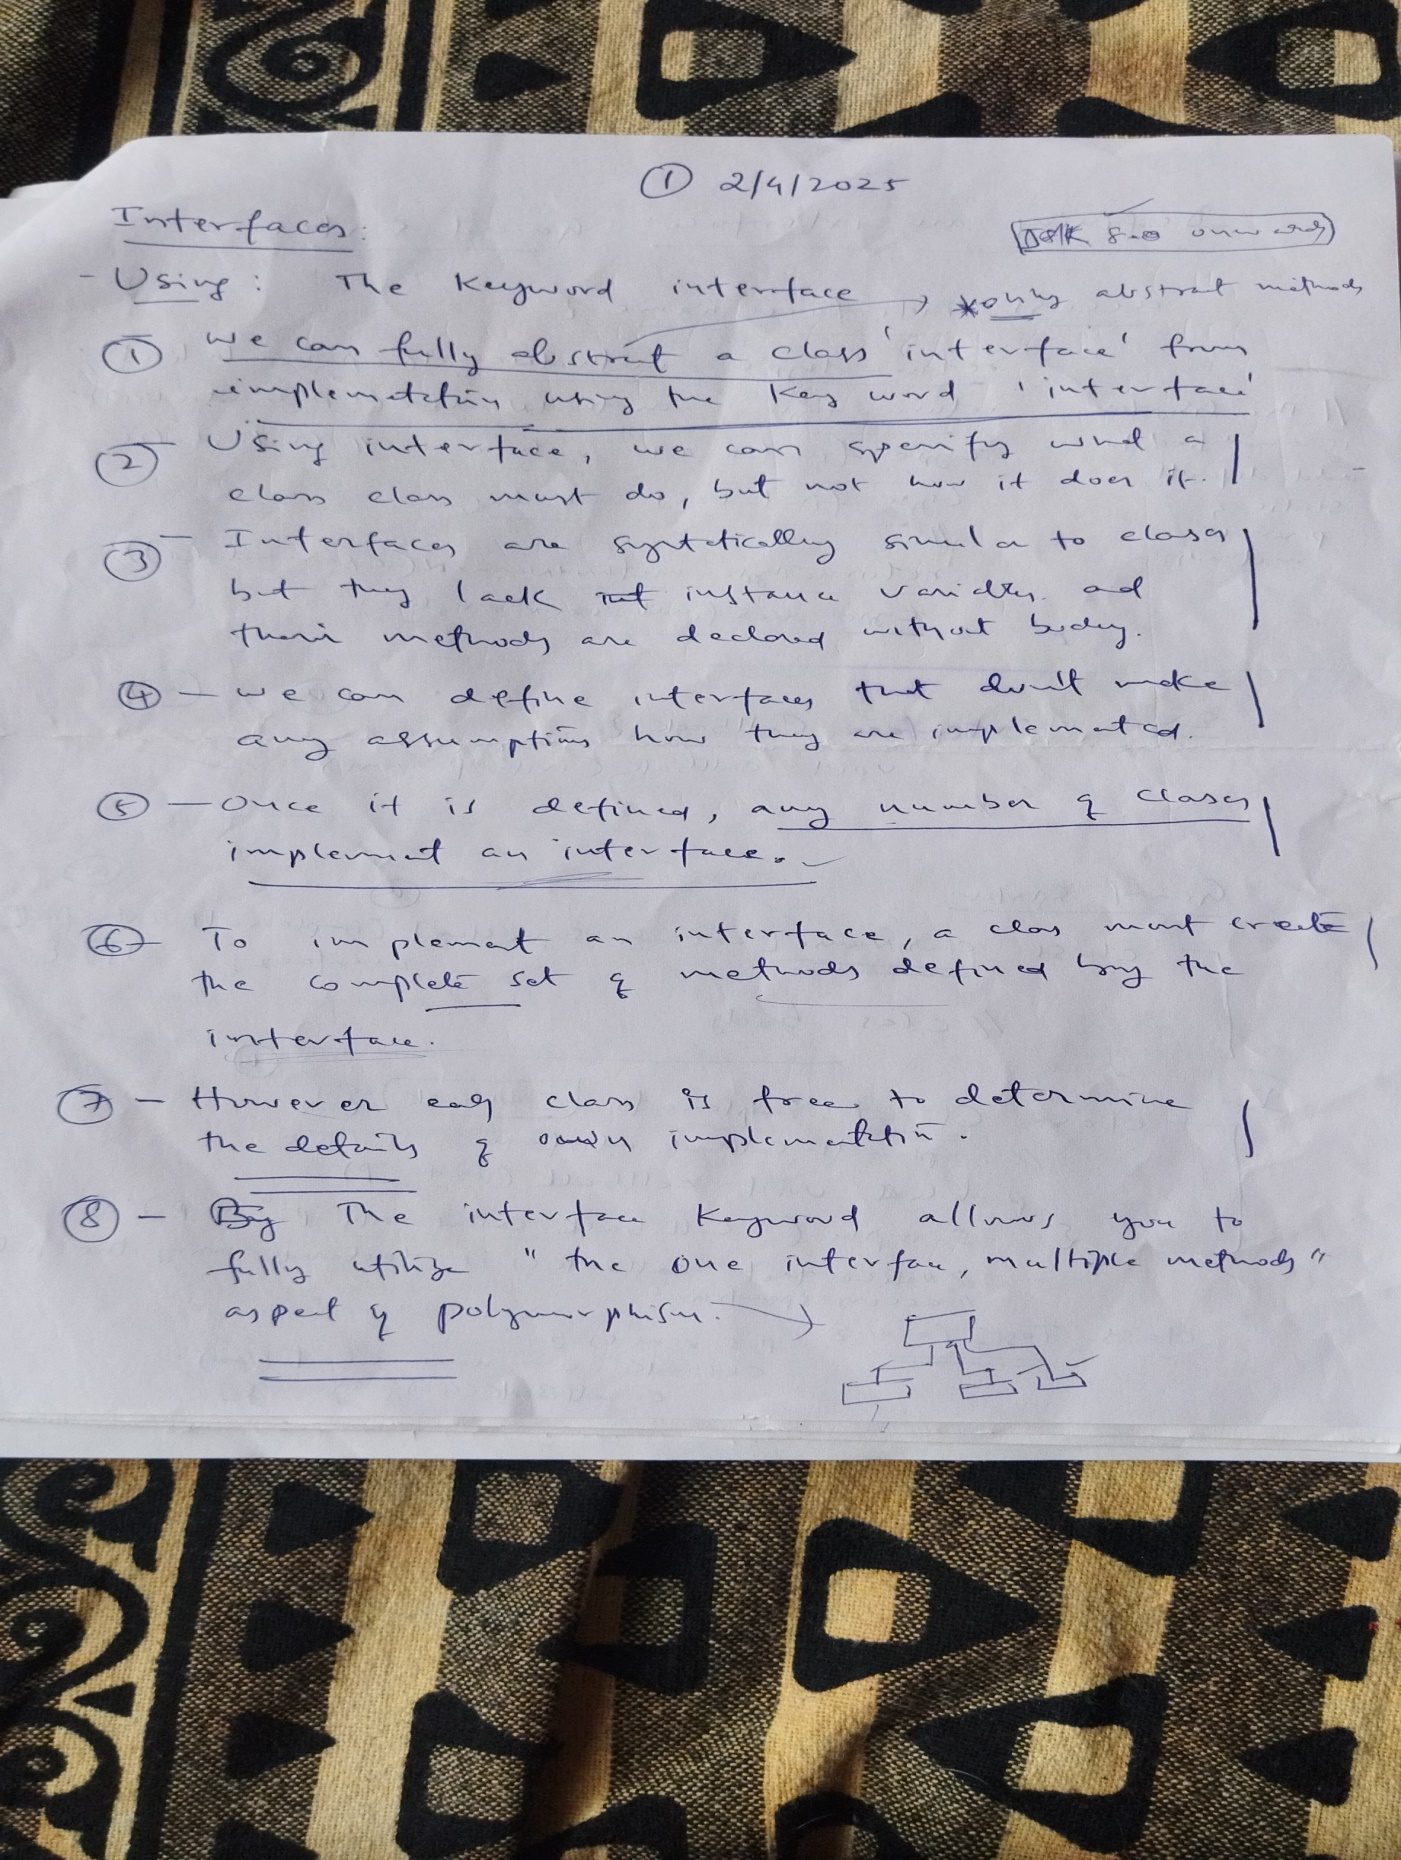 ① 2/4/2025
Interfaces:
JDK 8.0 onwards
- Using: The Keyword interface → *only abstract methods
① we can fully abstract a class 'interface' from
implementation using the Key word 'interface'
② - Using interface, we can specify what a
class class must do, but not how it does it.
③ - Interfaces are syntatically similar to classes
but they lack instance variables and
their methods are declared without body.
④ - we can define interfaces that don't make
any assumptions how they are implemented.
⑤ - Once it is defined, any number of classes
implement an interface.
⑥ - To implement an interface, a class must create
the complete set of methods defined by the
interface.
⑦ - However each class is free to determine
the details of implementation.
⑧ - By The interface Keyword allows you to
fully utilize "the one interface, multiple methods"
aspect of polymorphism. →